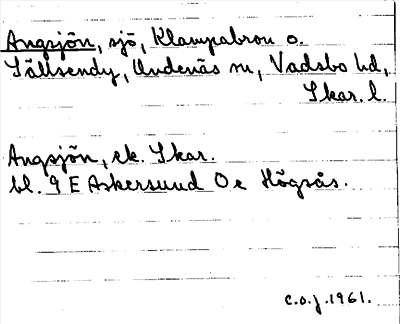 Angsjön, sjö, Klampabron o.
Sällsendy, Undenäs sn, Vadsbo hd,
Skar. l.
Angsjön, ek. Skar.
bl. 9 E Askersund Öe Högsås.
C.O.J. 1961.